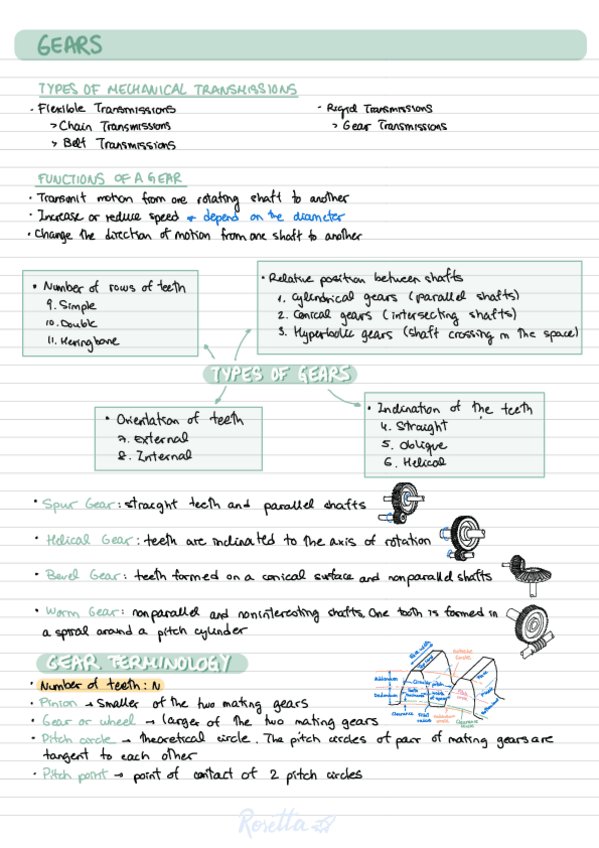 GEARS
TYPES OF MECHANICAL TRANSMISSIONS
· Flexible Transmissions
> Chain Transmissions
> Belt Transmissions
· Rigid Transmissions
> Gear Transmissions
FUNCTIONS OF A GEAR
· Transmit motion from one rotating shaft to another
· Increase or reduce speed → depend on the diameter
· Change the direction of motion from one shaft to another
• Number of rows of teeth
9. Simple
10. Double
11. Heringbone
• Relative position between shafts
1. Cylindrical gears (parallel shafts)
2. Conical gears (intersecting shafts)
3. Hyperbolic gears (shaft crossing in the space)
TYPES OF GEARS
• Orientation of teeth
7. External
8. Internal
• Inclination of the teeth
4. Straight
5. Oblique
6. Helical
• Spur Gear: straight teeth and parallel shafts
• Helical Gear: teeth are inclinated to the axis of rotation
• Bevel Gear: teeth formed on a conical surface and nonparallel shafts
• Worm Gear: nonparallel and noninterceting shafts. One tooth is formed in
a spiral around a pitch cylinder
GEAR TERMINOLOGY
• Number of teeth: N
• Pinion → smaller of the two mating gears
• Gear or wheel → larger of the two mating gears
• Pitch circle → theoretical circle. The pitch circles of pair of mating gears are
tangent to each other
• Pitch point → point of contact of 2 pitch circles
Addendum
Dedendum
Circular pitch
Clearance
Face
Rosetta